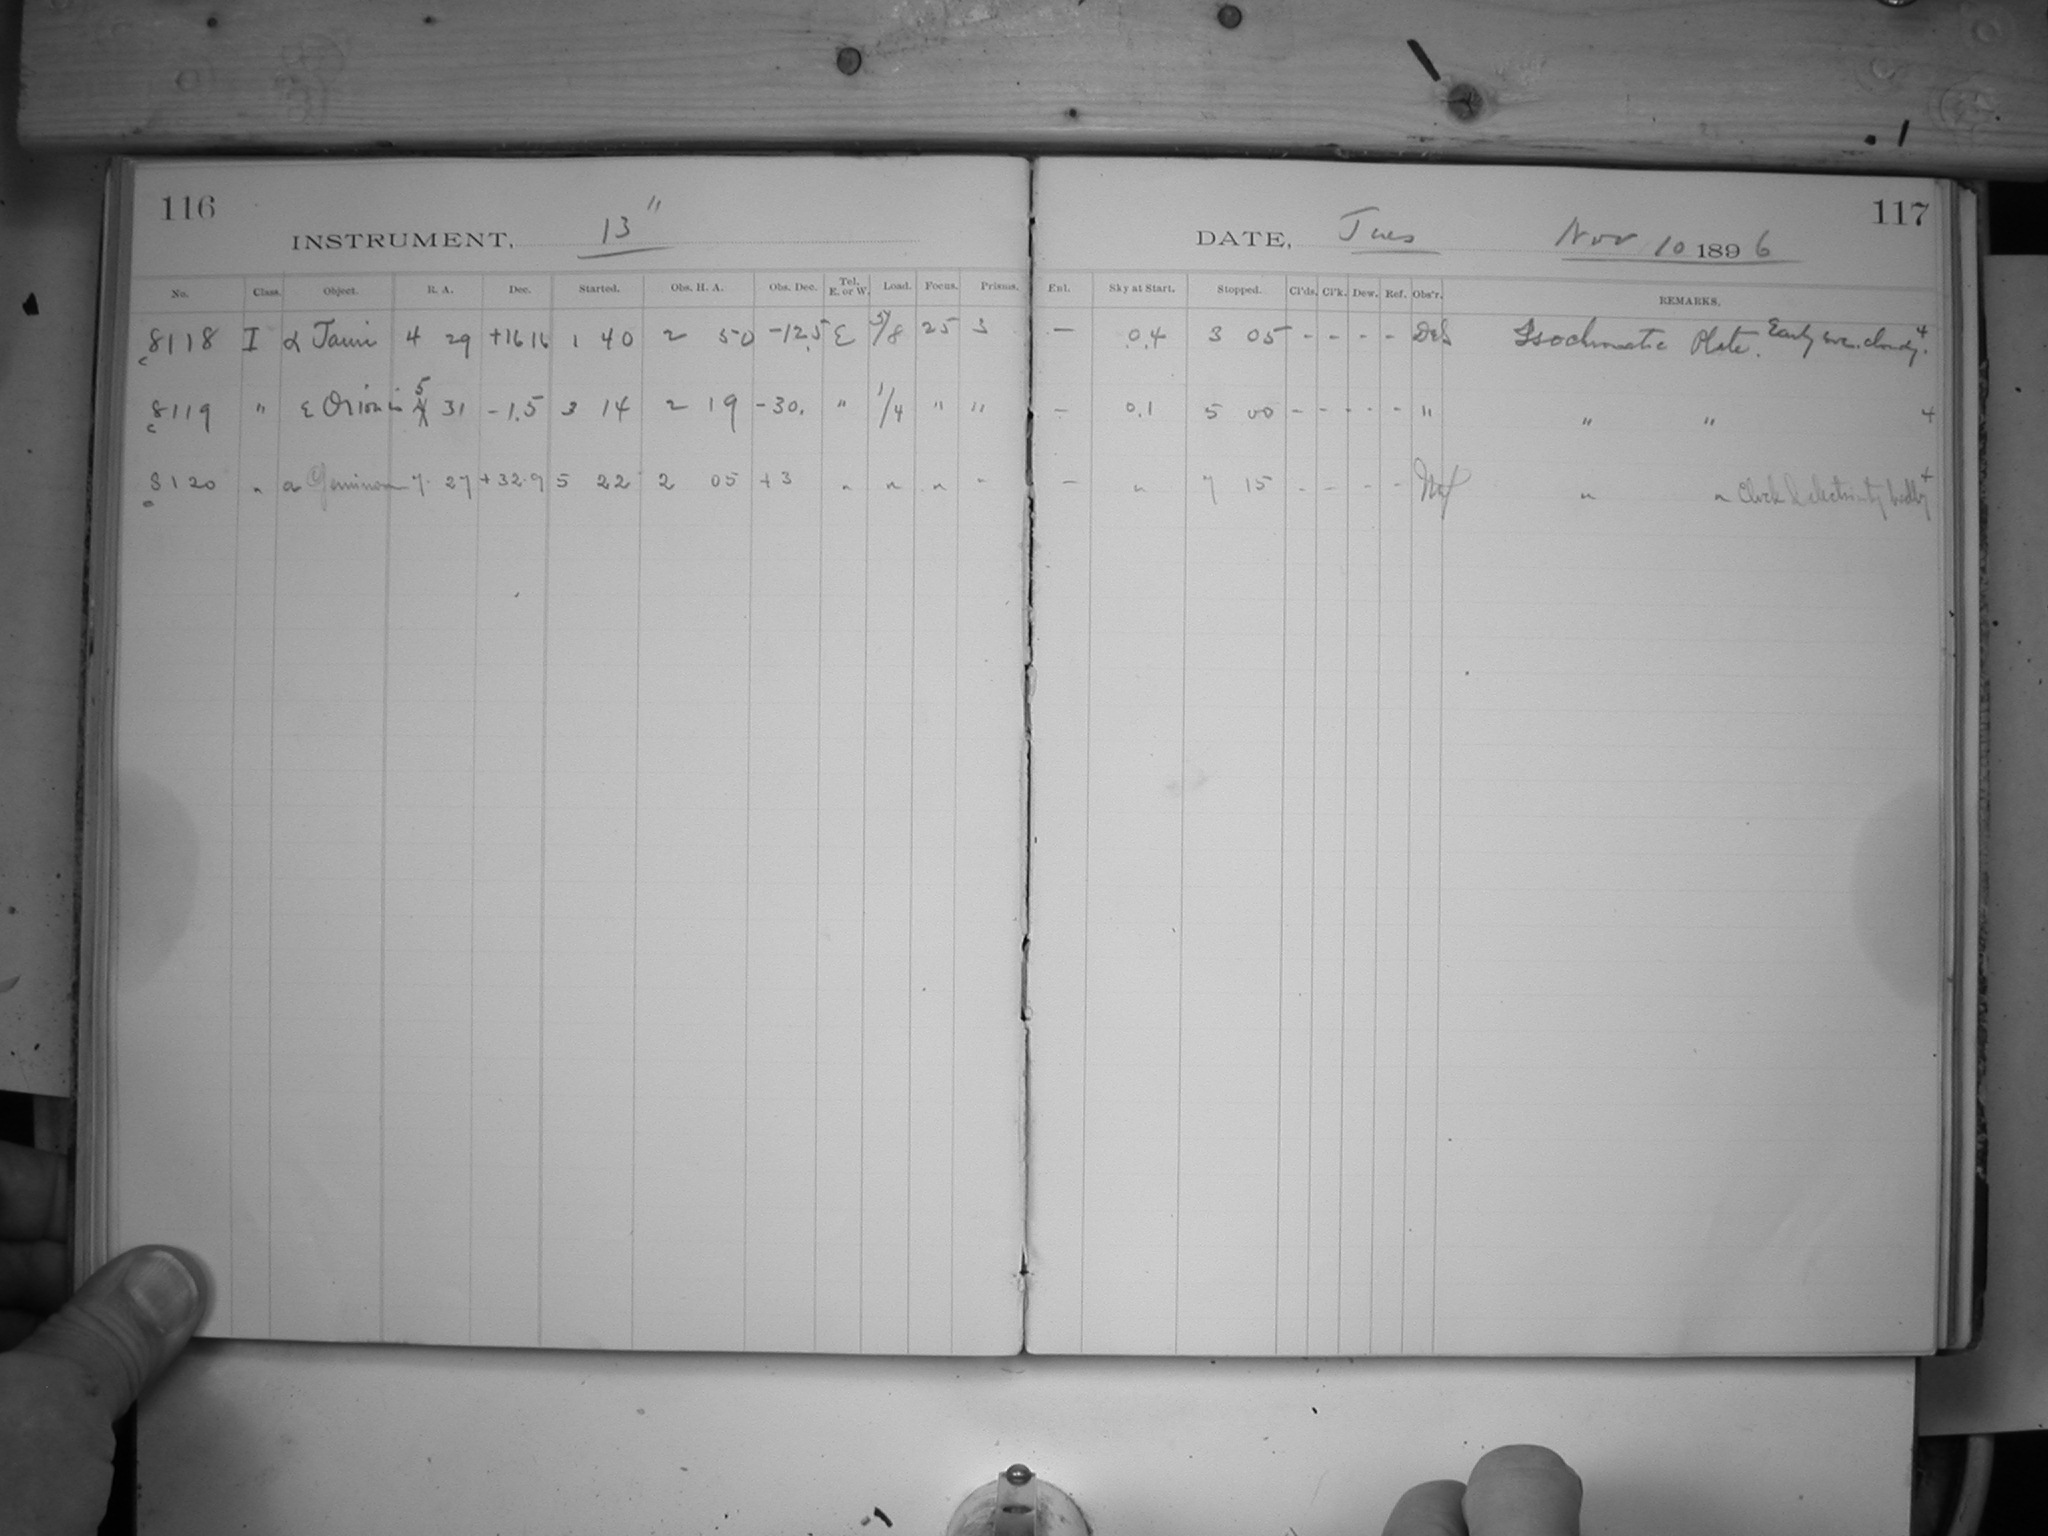 116
INSTRUMENT, 13"
No. Class. Object. R. A. Dec. Started. Obs. H. A. Obs. Dec. Tel. E. or W. Load. Focus. Prisms.
c8118 I α Tauri 4 29 +16 16 1 40 2 50 -12.5 E 5/8 25 3
c8119 " ε Orionis 5 31 -1.5 3 14 2 19 -30. " 1/4 " "
c8120 " α Geminorum 7 27 +32.9 5 22 2 05 +3 " " " "
117
DATE, Tues Nov 10 1896
Enl. Sky at Start. Stopped. Cl'ds. Cl'k. Dew. Ref. Obs'r. REMARKS.
— 0.4 3 05 - - - - Isochromatic Plate. Early eve. cloudy. 4
— 0.1 5 00 - - - - " " " 4
— " 7 15 - - - - " " Clock & electricity badly 4